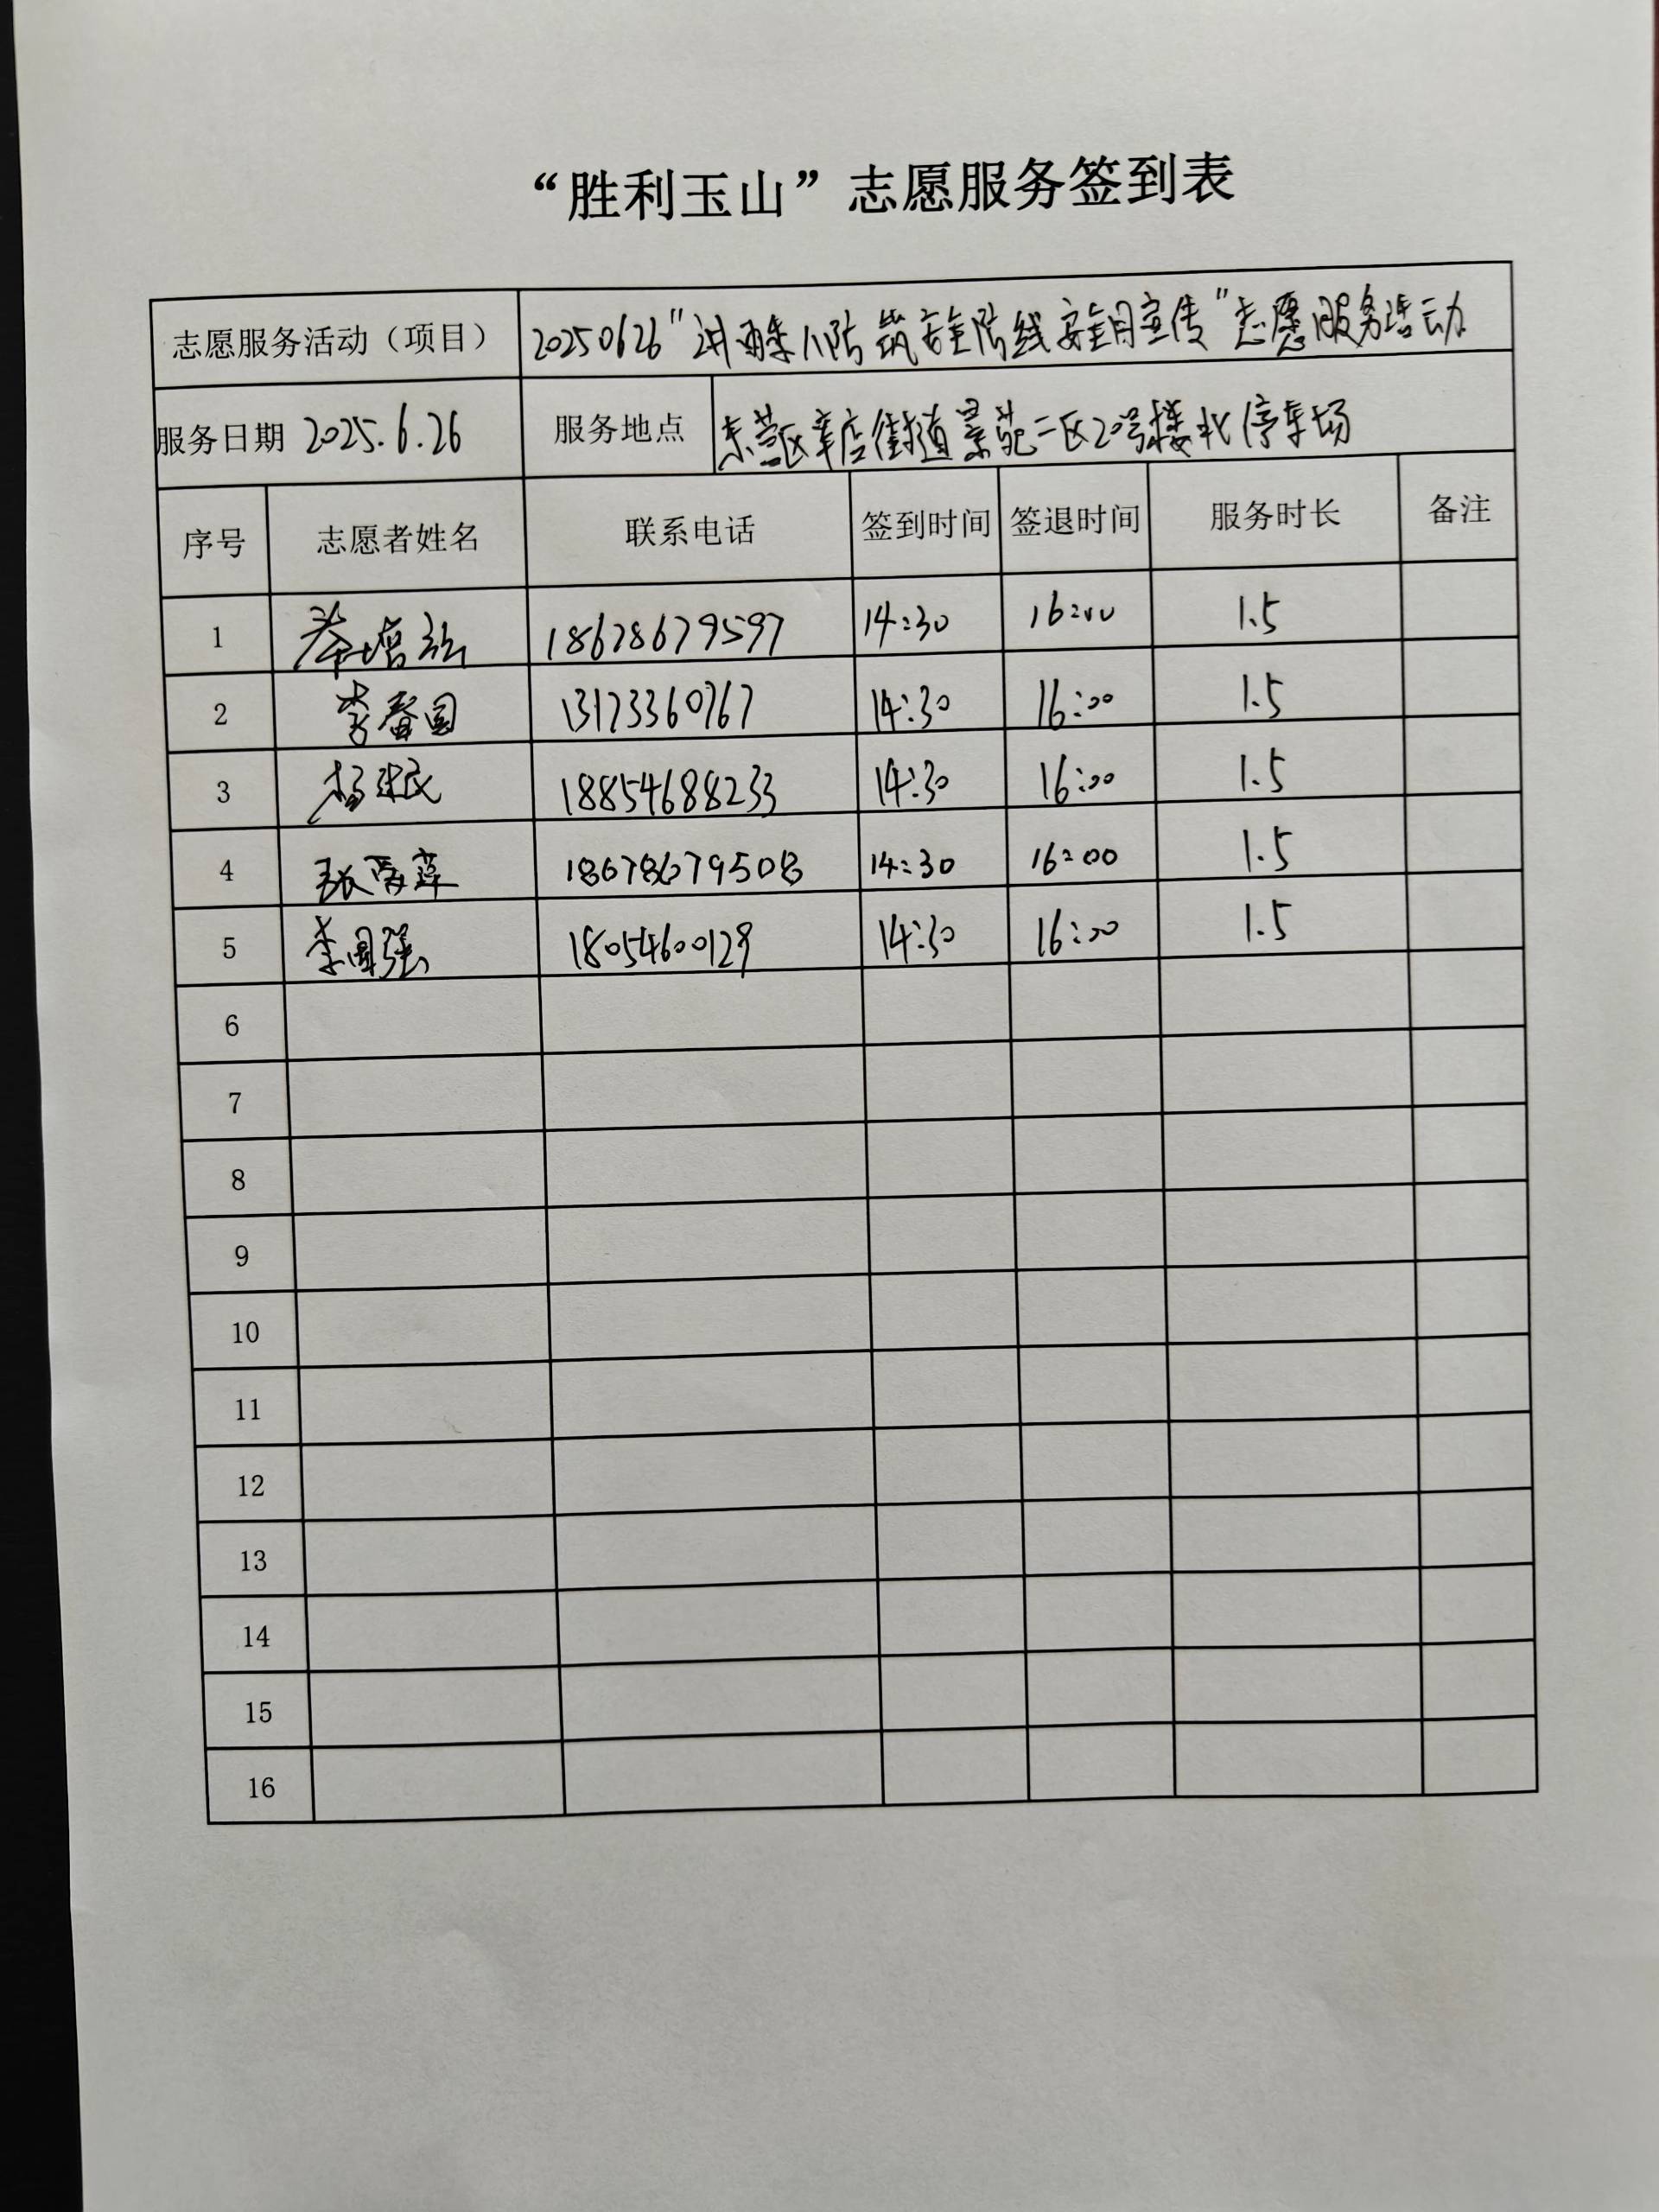 “胜利玉山”志愿服务签到表
志愿服务活动（项目） 20250626“讲雨季八防 筑安全防线 安全月宣传”志愿服务活动
服务日期 2025.6.26 服务地点 东营区辛店街道景苑二区20号楼北停车场
序号 志愿者姓名 联系电话 签到时间 签退时间 服务时长 备注
1 18678679597 14:30 16:00 1.5
2 李春国 13173360767 14:30 16:00 1.5
3 杨 民 18854688233 14:30 16:00 1.5
4 张 萍 18678679508 14:30 16:00 1.5
5 李国强 18054600129 14:30 16:00 1.5
6
7
8
9
10
11
12
13
14
15
16